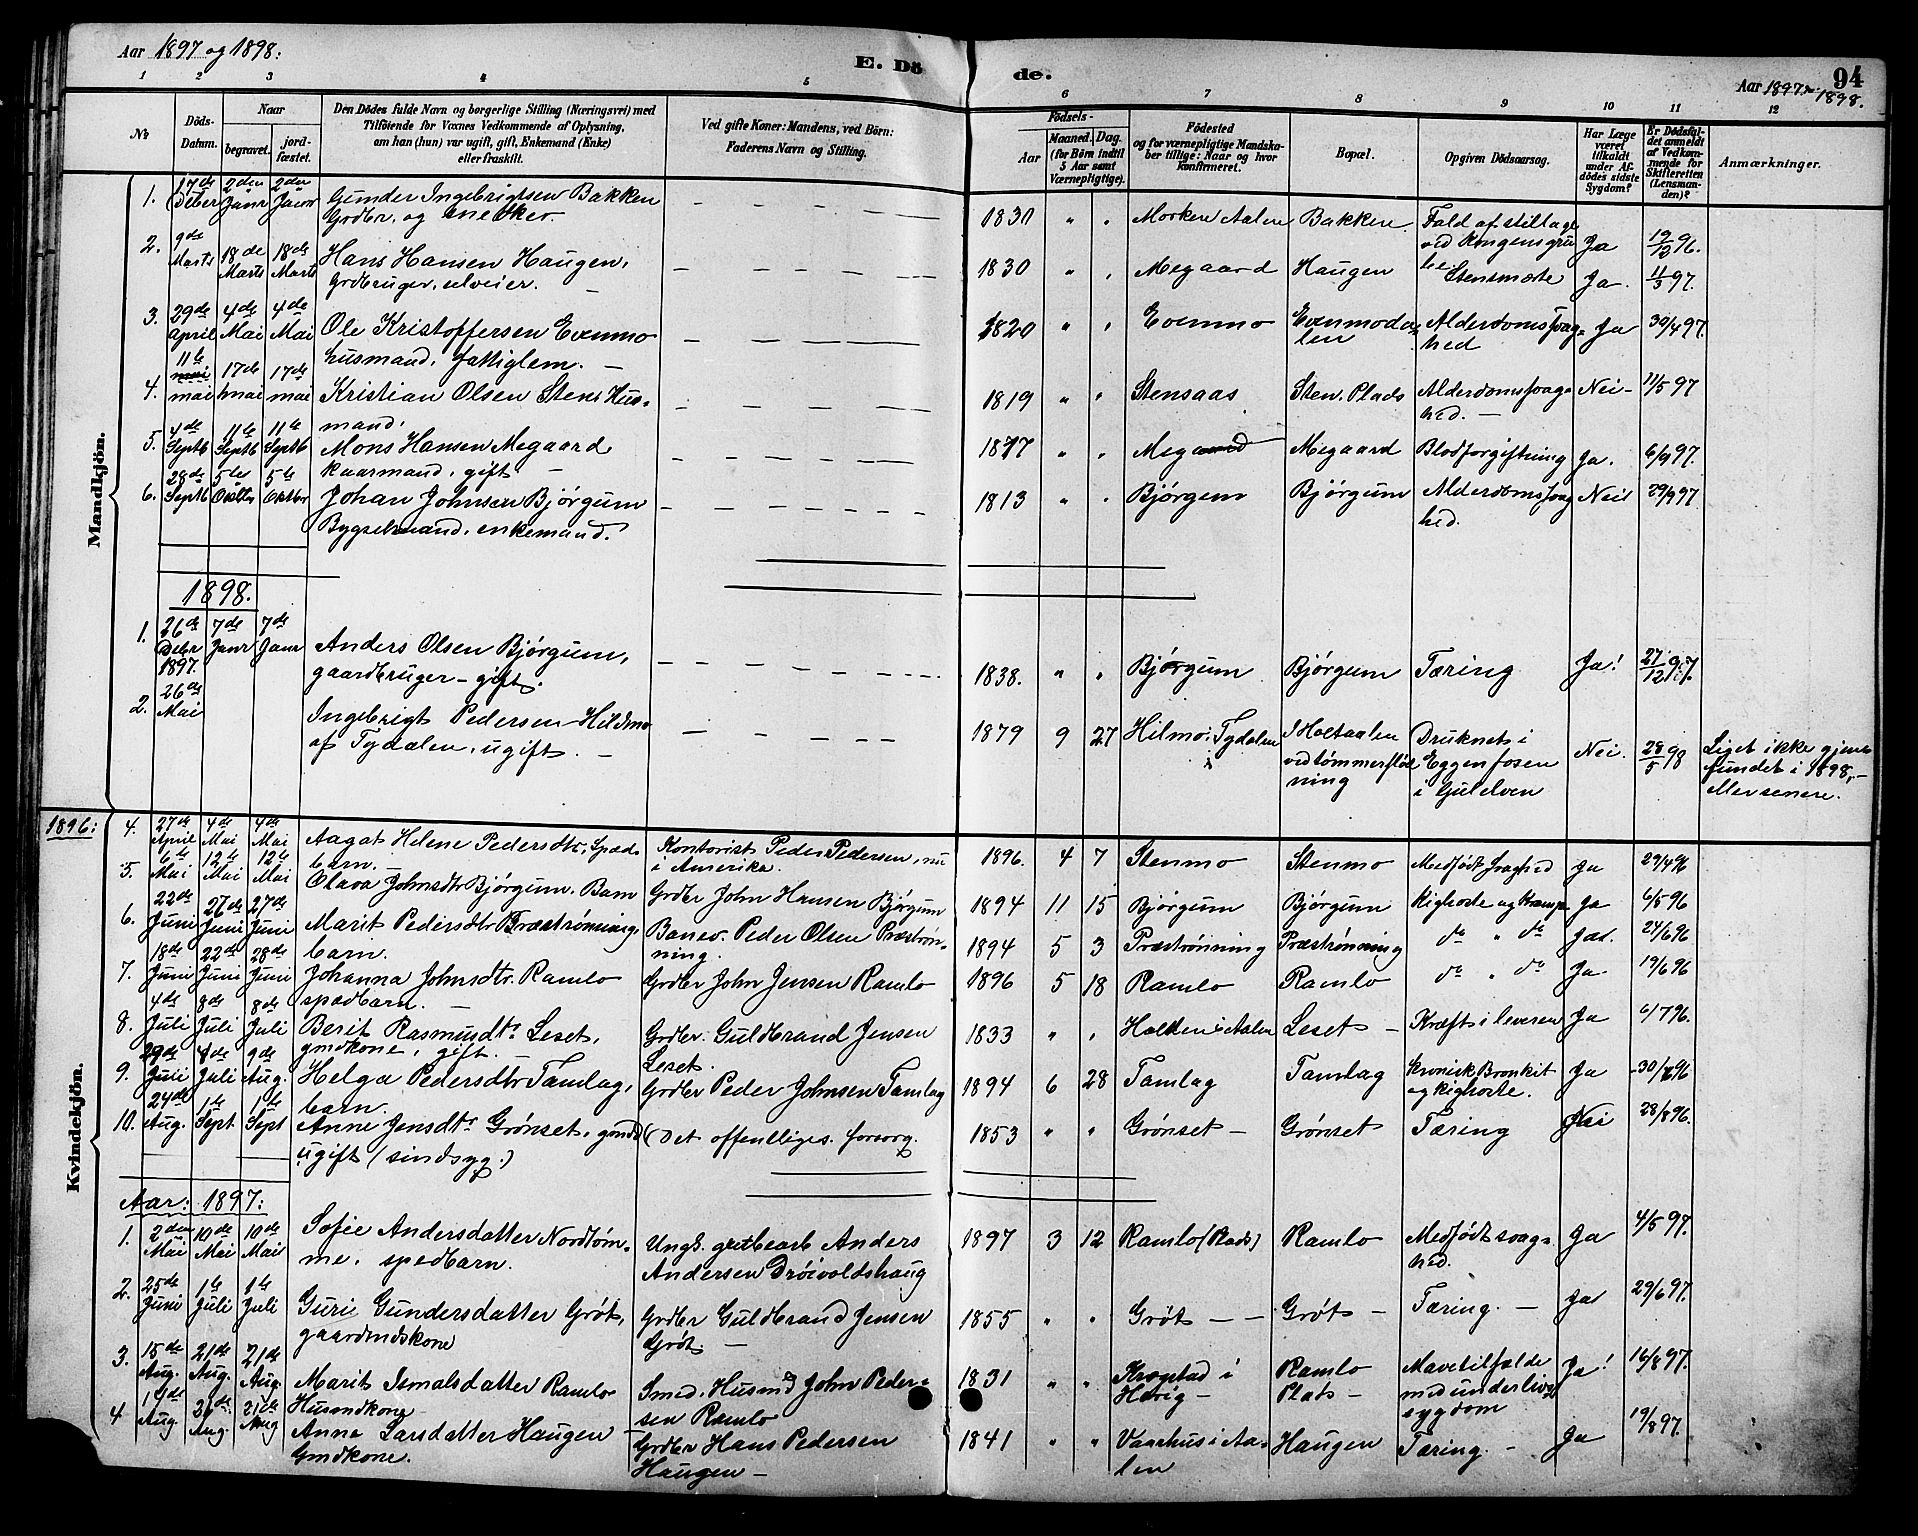 Aar 1897 og 1898.
E. Dö
de.
94
Aar 1897 1898.
1 2 3 4 5 6 7 8 9 10 11 12
No
Döds-Datum.
Naar
begravet.
jordfæstet.
Den Dödes fulde Navn og borgerlige Stilling (Næringsvei) med
Tilföiende for Voxnes Vedkommende af Oplysning,
om han (hun) var ugift, gift, Enkemand (Enke)
eller fraskilt.
Ved gifte Koner: Mandens, ved Börn:
Faderens Navn og Stilling.
Födsels-
Aar
Maaned. Dag.
(for Börn indtil
5 Aar samt
Værnepligtige).
Födested
og for værnepligtige Mandskaber
tillige: Naar og hvor
konfirmeret.
Bopæl.
Opgiven Dödsaarsag.
Har Læge
været
tilkaldt
under Afdödes
sidste
Sygdom?
Er Dödsfaldet
anmeldt
af Vedkommende
for
Skifteretten
(Lensmanden)?
Anmærkninger.
Mandkjön.
1. 17de Deber 2den Janr 2den Janr Gunder Ingebrigtsen Bakken
Grdbr. og snedker. 1831 " " Morken Aalen Bakken Fald af stillage
ved Kongensgrube Ja 19/12 96.
2. 9de Marts 18de Marts 18de Marts Hans Hansen Haugen,
Grdbruger, selveier. 1830 " " Megaard Haugen Stensmerte Ja. 11/3 97.
3. 29de April 4de Mai 4de Mai Ole Kristoffersen Evenmo
husmand, fattiglem. 1820 " " Evenmo Evenmodalen Alderdomssvaghed Ja 30/4 97.
4. 11te mai 17de mai 17de mai Kristian Olsen Sten Husmand. 1819 " " Stensaas Sten. Plads Alderdomssvaghed. Nei 11/5 97
5. 4de Septb 11te Septb 11te Septb Mons Hansen Megaard
kaarmand, gift 1817 " " Megaard Megaard Blodforgiftning Ja. 6/9 97.
6. 28de Septb 5te Oktbr 5te Oktbr Johan Johnsen Bjørgum
Bygselmand, enkemand. 1813 " " Bjørgum Bjørgum Alderdomssvaghed. Nei 29/9 97.
1898.
1. 26de Debr 1897. 7de Janr 7de Janr Anders Olsen Bjørgum,
gaardbruger - gift. 1838. " " Bjørgum Bjørgum Tæring Ja! 27/12 97.
2. 26de Mai Ingebrigt Pedersen Hildmo
af Tydalen, ugift. 1879 9 27 Hilmo i Tydalen I Holtaalen
ved tømmerflødning Druknet i
Eggenfosen
i Gulelven Nei. 28/5 98 Liget ikke gjenfundet
i 1898,
eller senere.
Kvindekjön.
1896:
4. 27de April 4de Mai 4de Mai Aagat Helene Pedersdtr, Spædbarn. Kontorist Peder Pedersen, nu
i Amerika. 1896. 4 7 Stenmo Stenmo Medfødt svaghed Ja 29/4 96
5. 6te Mai 12te Mai 12te Mai Olava Johnsdtr Bjørgum. Barn Grdbr John Hansen Bjørgum 1894 11 15 Bjørgum Bjørgum Kighoste og Krampe Ja 6/5 96
6. 22de Juni 27de Juni 27de Juni Marit Pedersdtr Præstrønning,
barn. Banev. Peder Olsen Præstrønning. 1894 5 3 Præstrønning Præstrønning do " do Ja. 24/6 96
7. 18de Juni 22de Juni 28de Juni Johanna Johnsdtr. Ramlo
spædbarn. Grdbr John Jensen Ramlo 1896 5 18 Ramlo Ramlo do " do Ja. 19/6 96
8. 4de Juli 8de Juli 8de Juli Berit Rasmusdtr Leset,
gmdkone, gift. Grdbr. Guldbrand Jensen
Leset. 1833 " " Holden i Aalen Leset Kræft i leveren Ja 6/7 96.
9. 29de Juli 4de Juli 9de Aug. Helga Pedersdtr Tamlag,
barn. Grdbr Peder Johnsen Tamlag 1894 6 28 Tamlag Tamlag Kronisk Bronkit
og kighoste. Ja 30/7 96
10. 24de Aug. 1te Sept. 1te Sept Anne Jensdtr Grønset,
ugift (sindsyg.) (Det offentliges forsorg. 1853 " " Grønset Grønset Tæring Nei 28/8 96.
Aar: 1897:
1. 2den Mai 10de Mai 10de Mai Sofie Andersdatter Nordtømme,
spedbarn. Ungk. Anders
Andersen Drøivoldshaug 1897 3 12 Ramlo (Plads) Ramlo Medfødt svaghed. Ja 4/5 97.
2. 25de Juni 1te Juli 1te Juli Guri Gundersdatter Grøt,
gaardmdskone Grdbr Guldbrand Jensen
Grøt. 1855 " " Grøt Grøt Tæring. Ja 29/6 97.
3. 15de Aug. 21de Aug. 21de Aug. Marit Ismalsdatter Ramlo
Husmdkone Smed. Husmd John Pedersen
Ramlo 1831 " " Krogstad i
Horig Ramlo
Plads Mavetilfælde
med underlivssygdom Ja! 16/8 97.
4 Aug. Aug. 21de Aug Anne Larsdatter Haugen
Gmdkone. Grdbr Hans Pedersen
Haugen 1841 " " Vaarhus i Aalen Haugen Tæring. Ja 19/8 97.